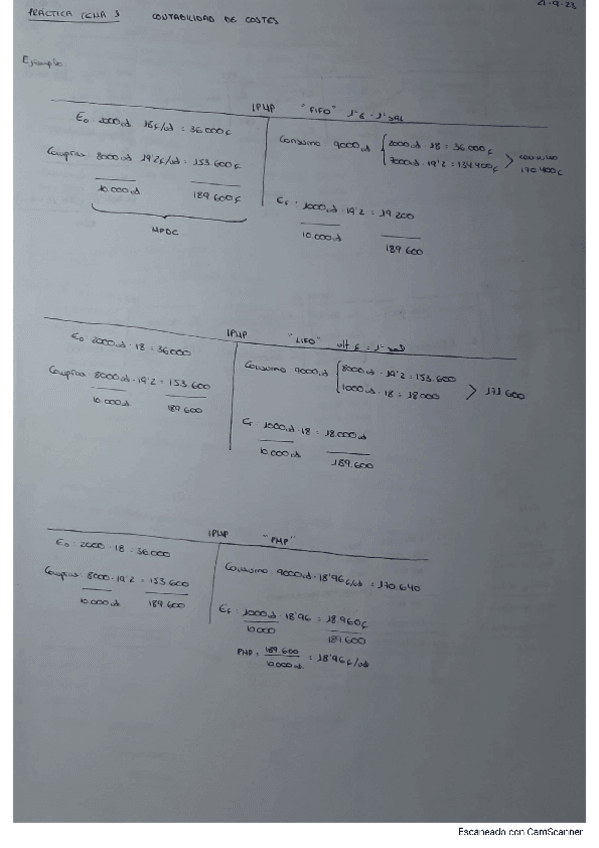 21-9-23
PRÁCTICA TEMA 3 CONTABILIDAD DE COSTES
Ejemplo
IPMP "FIFO" 1ª E - 1ª sal
E₀: 2000ud 18€/ud = 36.000€
Consumo 9000ud { 2000ud · 18 = 36.000€
7000ud · 19'2 = 134.400€ > consumo 170.400€
Compras 8000ud 19'2€/ud = 153.600€
10.000ud 189.600€
MPDC
Ef: 1000ud · 19'2 = 19.200
10.000ud 189.600
IPMP "LIFO" ult E = 1ª sal
E₀: 2000ud · 18 = 36.000
Compras 8000ud · 19'2 = 153.600
10.000ud 189.600
Consumo 9000ud { 8000ud · 19'2 = 153.600
1000ud · 18 = 18000 > 171.600
Ef 1000ud · 18 = 18.000ud
10.000ud 189.600
IPMP "PMP"
E₀: 2000 · 18 = 36.000
Compras 8000 · 19'2 = 153.600
10.000ud 189.600
Consumo 9000ud · 18'96 €/ud = 170.640
Ef: 1000ud · 18'96 = 18.960€
10.000 189.600
PMP = 189.600 / 10.000ud = 18'96€/ud
Escaneado con CamScanner